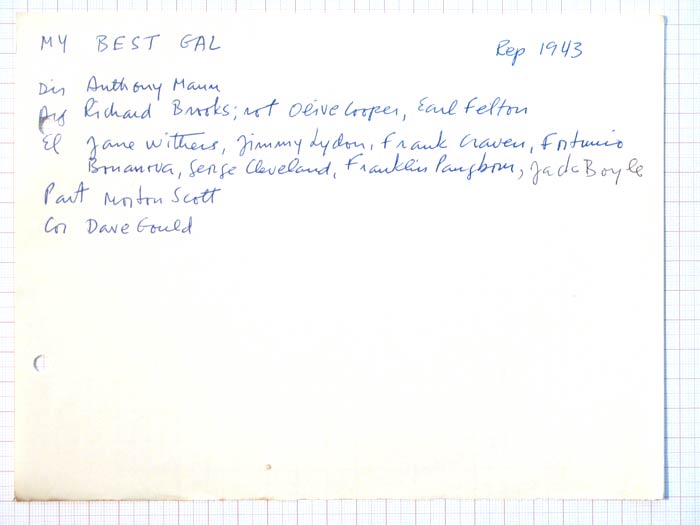 MY BEST GAL Rep 1943
Dir Anthony Mann
Arg Richard Brooks; rot Olive Cooper, Earl Felton
El Jane Withers, Jimmy Lydon, Frank Craven, Fortunio
Bonanova, George Cleveland, Franklin Pangborn, Jack Boyle
Part Morton Scott
Cor Dave Gould